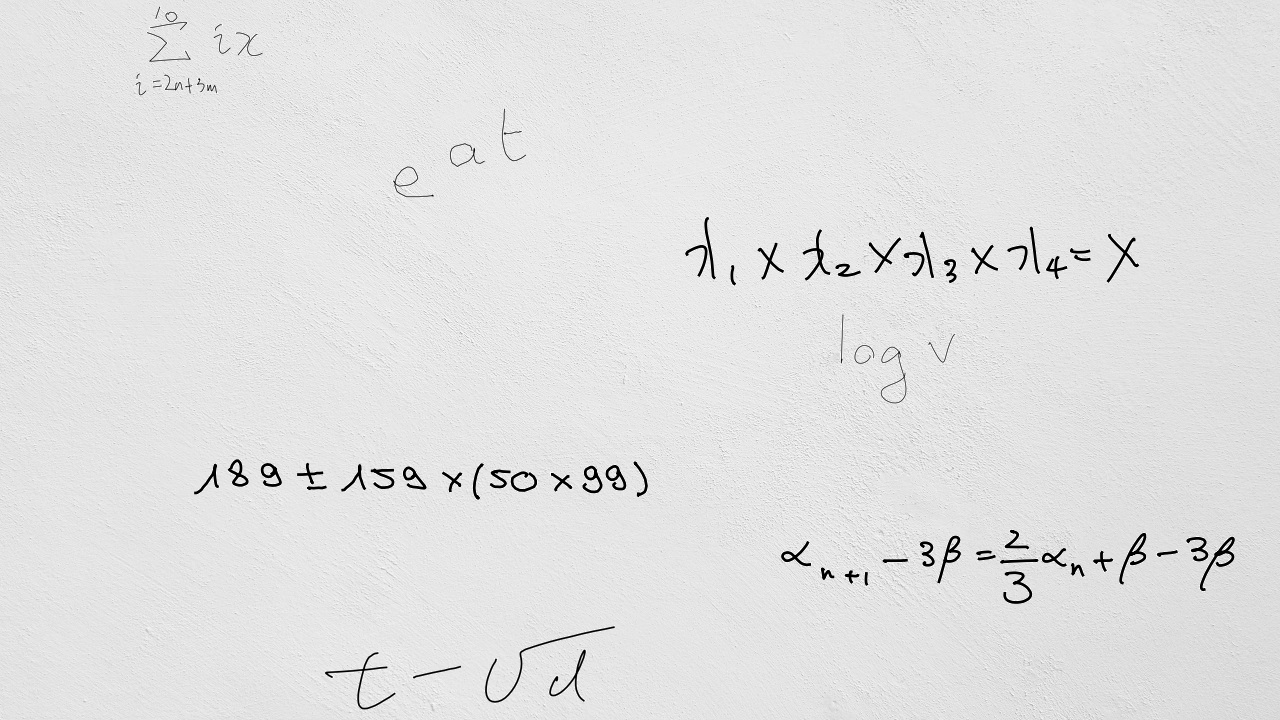 \sum_{i=2n+3m}^{10} ix
e^{at}
\lambda_1 \times \lambda_2 \times \lambda_3 \times \lambda_4 = X
\log v
189 \pm 159 \times (50 \times 99)
\alpha_{n+1} - 3\beta = \frac{2}{3} \alpha_n + \beta - 3\beta
t - \sqrt{d}